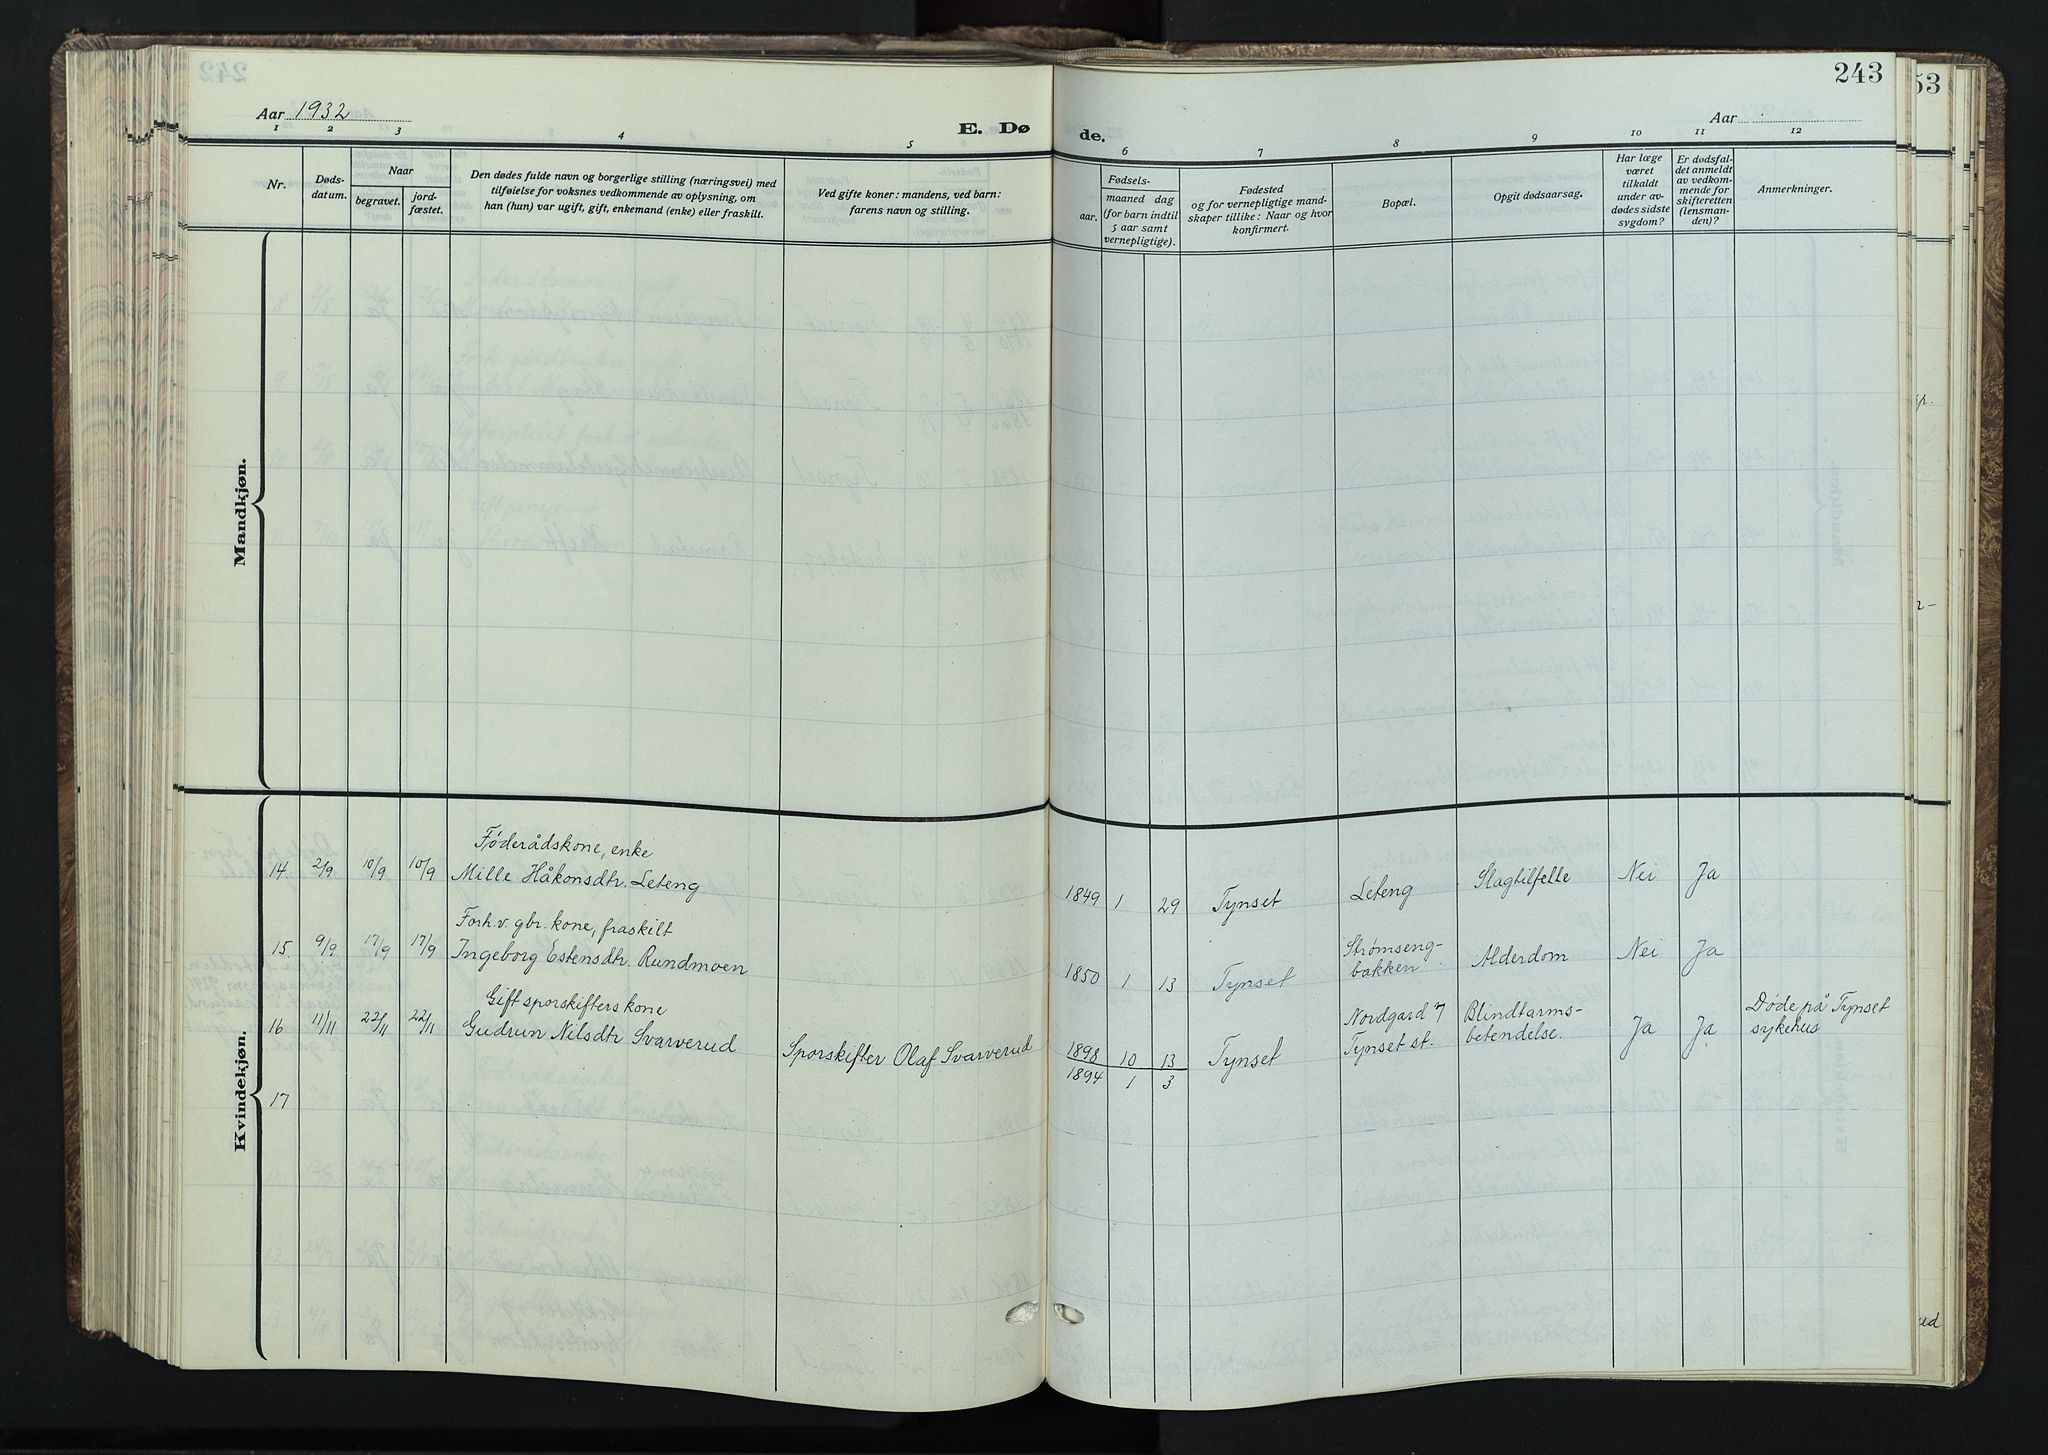 243
53
Aar 1932
E. Dø
de.
Aar
1 2 3 4 5
6 7 8 9 10 11 12
Nr.
Døds-
datum.
Naar
begravet.
jord-
fæstet.
Den dødes fulde navn og borgerlige stilling (næringsvei) med
tilføielse for voksnes vedkommende av oplysning, om
han (hun) var ugift, gift, enkemand (enke) eller fraskilt.
Ved gifte koner: mandens, ved barn:
farens navn og stilling.
Fødsels-
aar.
maaned dag
(for barn indtil
5 aar samt
vernepligtige).
Fødested
og for vernepligtige mand-
skaper tillike: Naar og hvor
konfirmert.
Bopæl.
Opgit dødsaarsag.
Har læge
været
tilkaldt
under av-
dødes sidste
sygdom?
Er dødsfal-
det anmeldt
av vedkom-
mende for
skifteretten
(lensman-
den)?
Anmerkninger.
Mandkjøn.
Kvindekjøn.
Føderådskone, enke
14 2/9 10/9 10/9 Mille Håkonsdtr. Leteng 1849 1 29 Tynset Leteng Slagtilfelle Nei Ja
Forh.v. gbr. kone, fraskilt
15 9/9 17/9 17/9 Ingeborg Estensdtr. Rundmoen 1850 1 13 Tynset Strømseng-
bakken Alderdom Nei Ja
Gift sporskifters kone
16 11/11 22/11 22/11 Gudrun Nilsdtr Svarverud Sporskifter Olaf Svarverud 1898 10 13 Tynset Nordgard 7
Tynset st. Blindtarms-
betendelse. Ja Ja Døde på Tynset
sykehus
1894 1 3
17